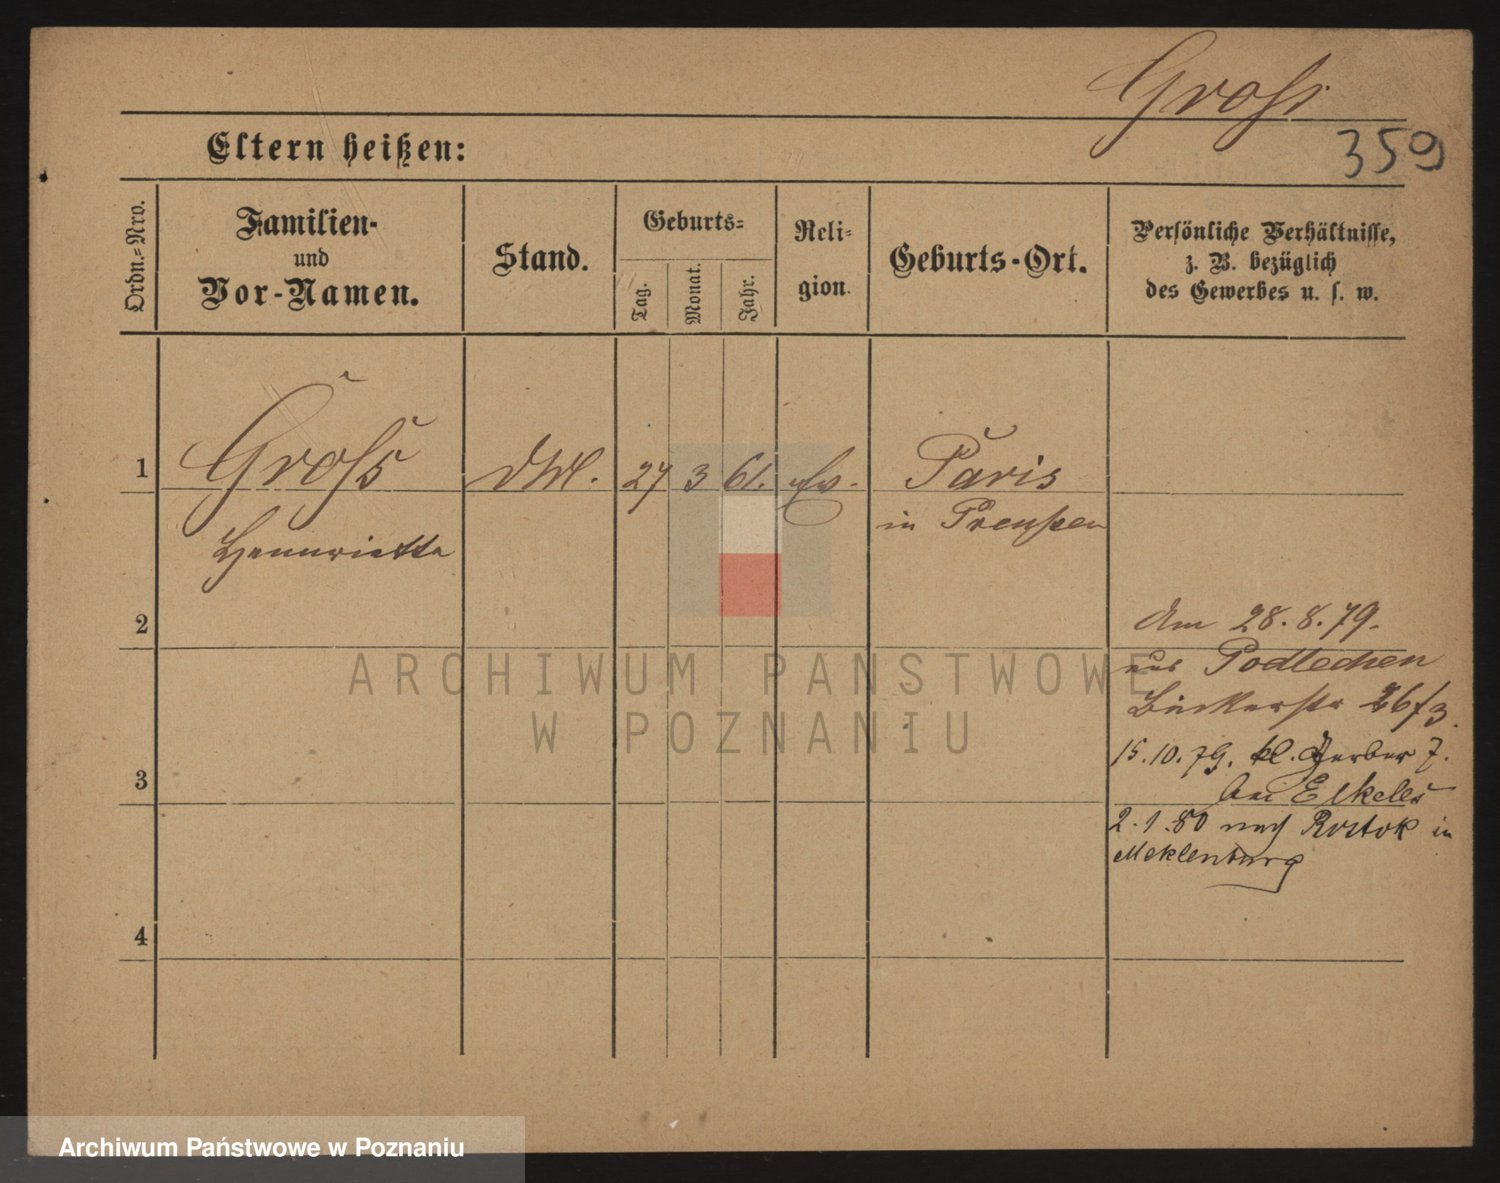 Groß
359
Eltern heißen:
Ordn.-Nro.
Familien-
und
Vor-Namen.
Stand.
Geburts-
Tag.
Monat.
Jahr.
Reli-
gion.
Geburts-Ort.
Persönliche Verhältnisse,
z. B. bezüglich
des Gewerbes u. s. w.
1 Groß 27 3 61. Ev. Paris
Hennriette in Preußen
2
Am 28.8.79.
aus Podlechen
Bäckerstr 26/3.
15.10.79. kl. Gerber 7.
bei Elkeles
3
2.1.80 nach Rostok in
Meklenburg
4
ARCHIWUM PAŃSTWOWE
W POZNANIU
Archiwum Państwowe w Poznaniu